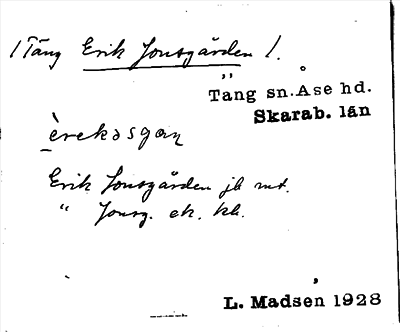 /Täng Erik Jonsgården /.
Täng sn. Åse hd.
Skarab. län
èrekəsgaṇ
Erik Jonsgården jb mt.
" Jonsg. ek. kb.
L. Madsén 1928